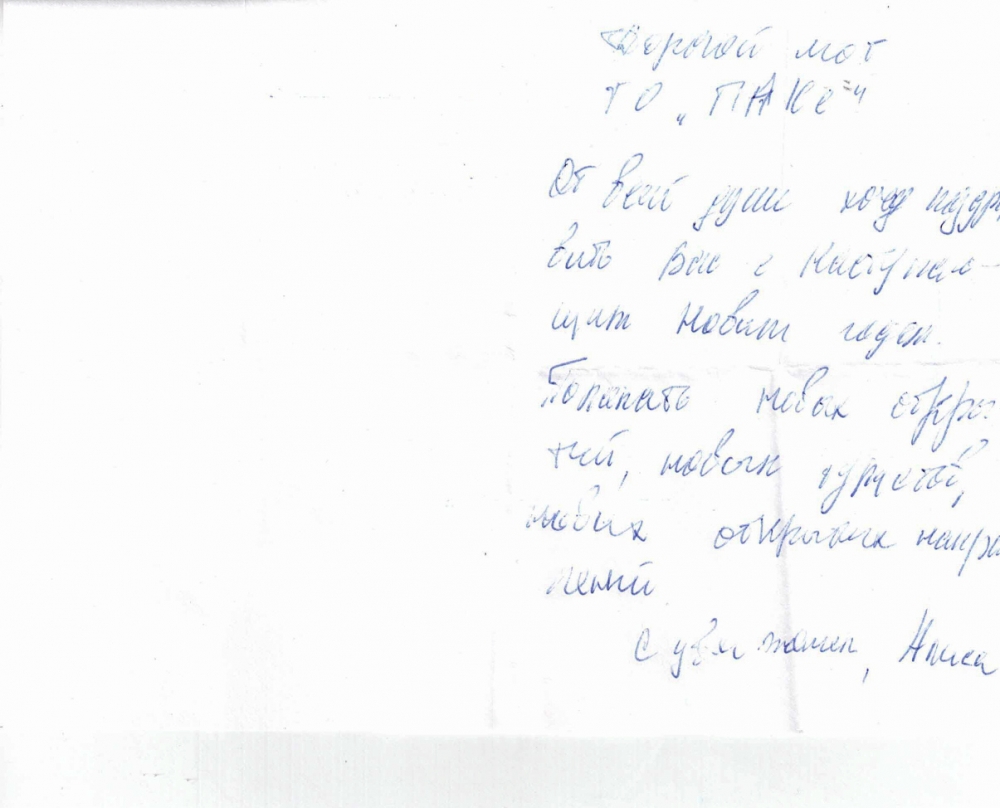 Дорогой мой
ТО "ПАКС"
От всей души хочу поздра
вить Вас с Наступаю-
щим Новым годом.
новых откры
тий, новых туристов,
новых открытых направ
лений
С уважением, Алиса